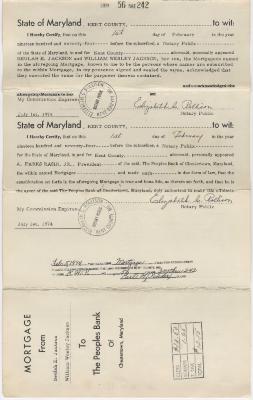 LIBER 56 PAGE 242
State of Maryland, KENT COUNTY, to wit:
I Hereby Certify, that on this 1st day of February in the year
nineteen hundred and seventy-four before the subscriber, a Notary Public
of the State of Maryland, in and for Kent County, personally appeared
BEULAH E. JACKSON AND WILLIAM WESLEY JACKSON, her son, the Mortgagors named
in the aforegoing Mortgage, known to me to be the persons whose names are subscribed
to the within Mortgage, in my presence signed and sealed the same, acknowledged that
they executed the same for the purposes therein contained.
and acknowledged the
aforegoing Mortgage to be
My Commission Expires:
Notary Public
July 1st, 1974
State of Maryland, KENT COUNTY, to wit:
I Hereby Certify, that on this 1st day of February in the year
nineteen hundred and seventy-four before the subscriber, a Notary Public
for the State of Maryland, in and for Kent County, personally appeared
A. PARKS RASIN, JR., President of the said The Peoples Bank of Chestertown, Maryland,
the within named Mortgagee and made oath in due form of law, that the
consideration set forth in the aforegoing Mortgage is true and bona fide, as therein set forth, and that he is
the agent of the said The Peoples Bank of Chestertown, Maryland, duly authorized to make this affidavit.
My Commission Expires:
Notary Public
July 1st, 1974
Mortgage
MORTGAGE
From
Beulah E. Jackson
William Wesley Jackson
To
The Peoples Bank
Of
Chestertown, Maryland